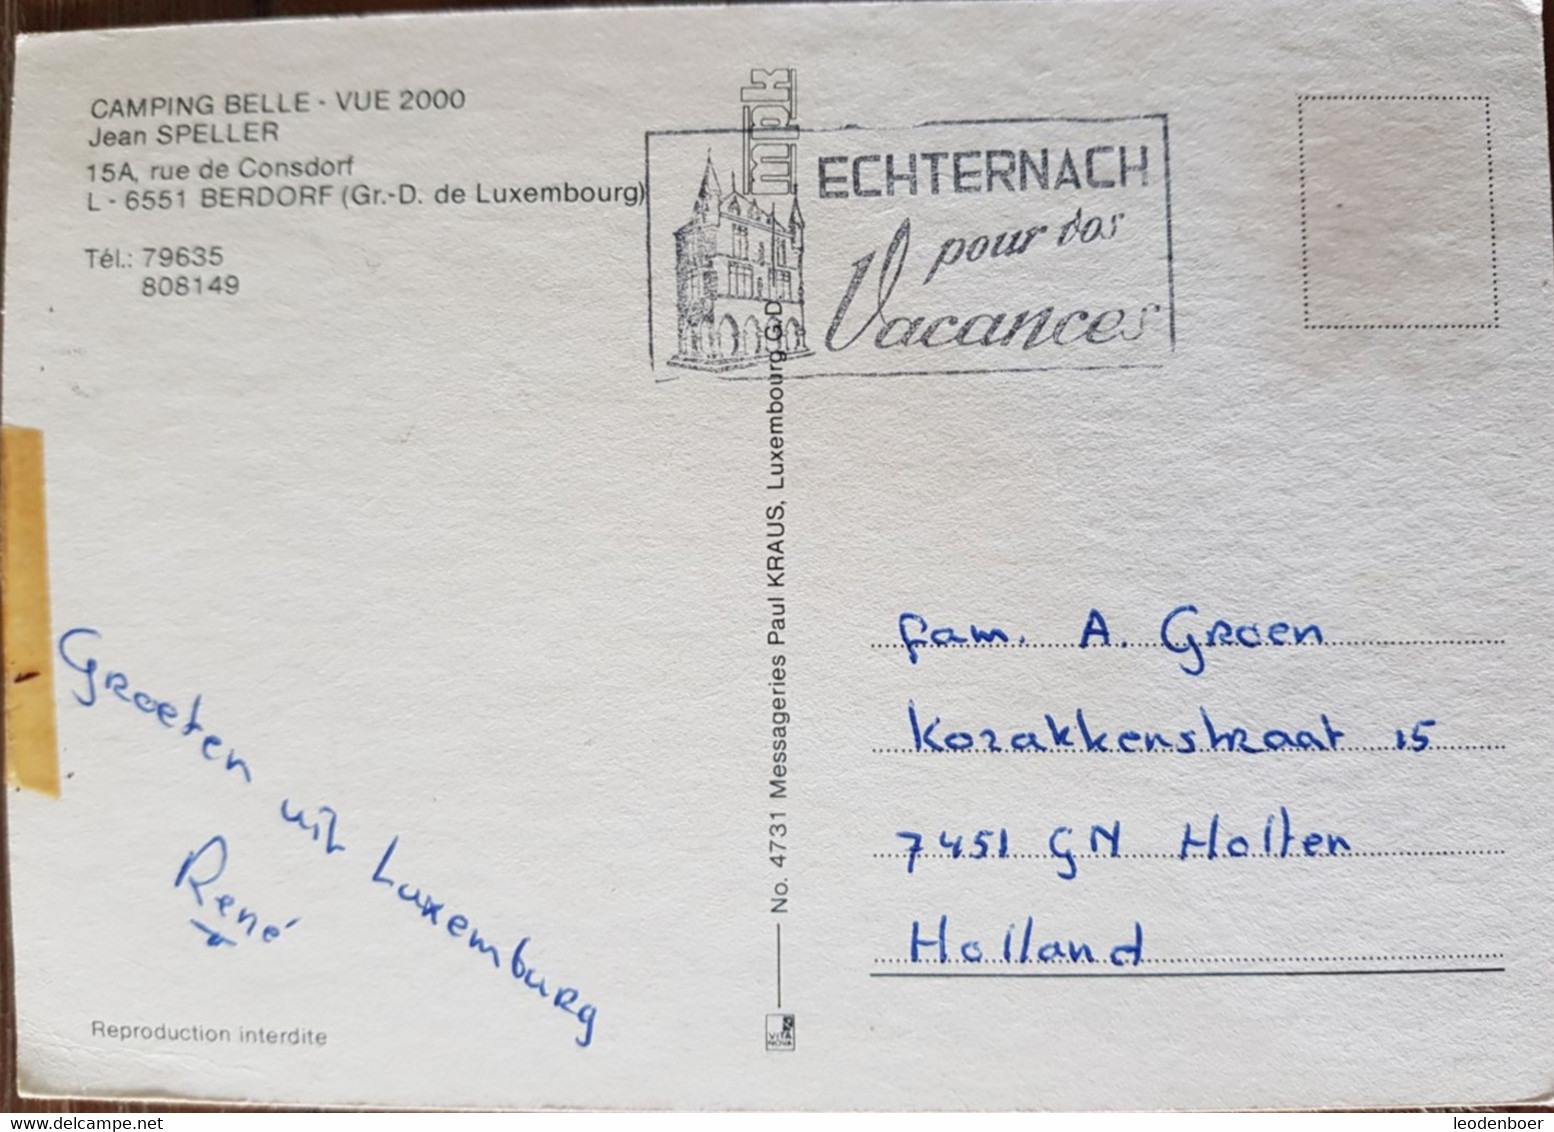 CAMPING BELLE - VUE 2000
Jean SPELLER
15A, rue de Consdorf
L - 6551 BERDORF (Gr.-D. de Luxembourg)
Tél.: 79635
808149
mpk
ECHTERNACH
pour vos
Vacances
No. 4731 Messageries Paul KRAUS, Luxembourg G.D.
VITA
NOVA
Groeten uit Luxemburg
René
Reproduction interdite
fam. A. Groen
Kozakkenstraat 15
7451 GN Holten
Holland
delcampe.net
leodenboer